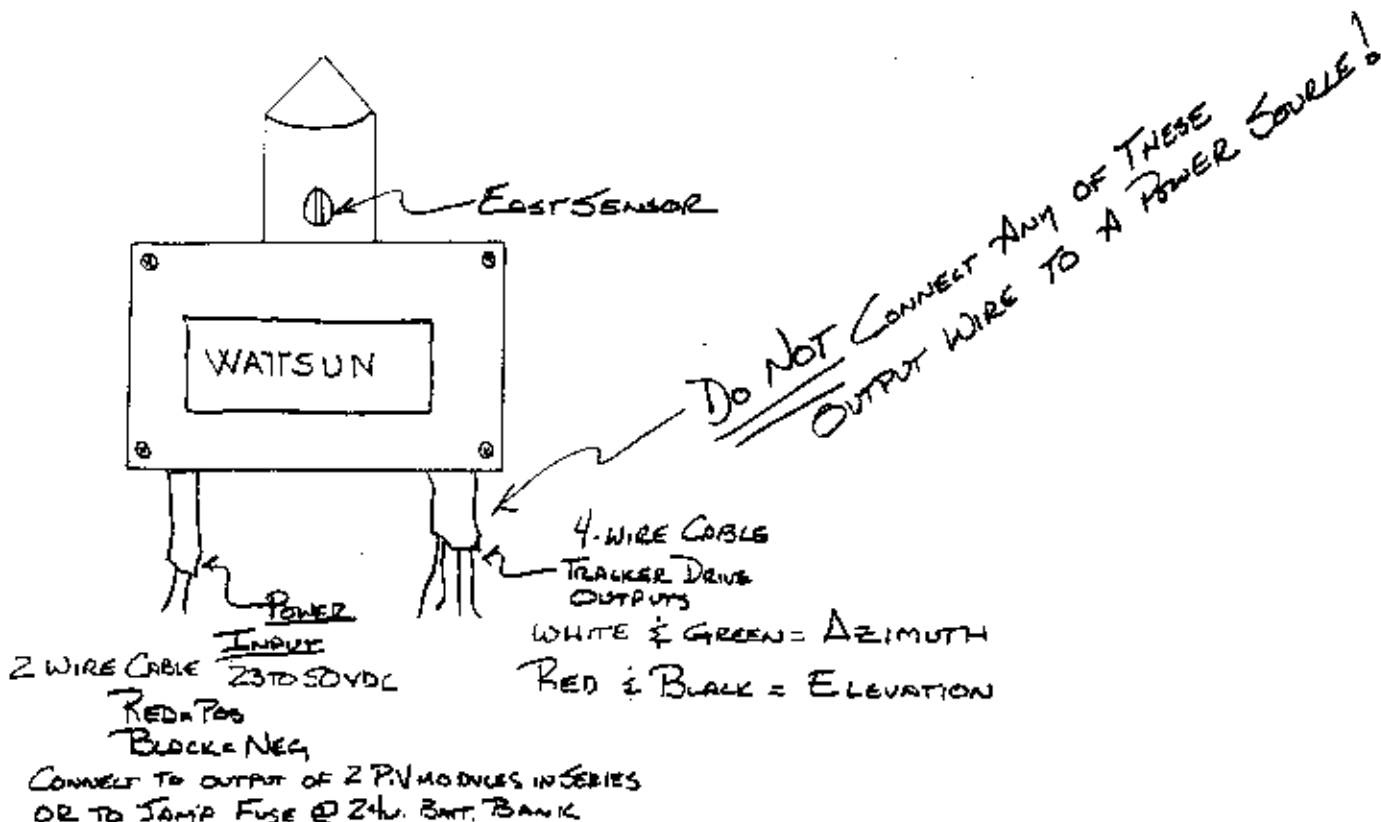 EAST SENSOR
DO NOT CONNECT ANY OF THESE
OUTPUT WIRE TO A POWER SOURCE!
WATTSUN
4-WIRE CABLE
TRACKER DRIVE
OUTPUTS
WHITE & GREEN = AZIMUTH
RED & BLACK = ELEVATION
POWER
INPUT
2 WIRE CABLE 23 TO 50 VDC
RED = POS
BLACK = NEG
CONNECT TO OUTPUT OF 2 P.V MODULES IN SERIES
OR TO FUSE @ 24V. BATT. BANK